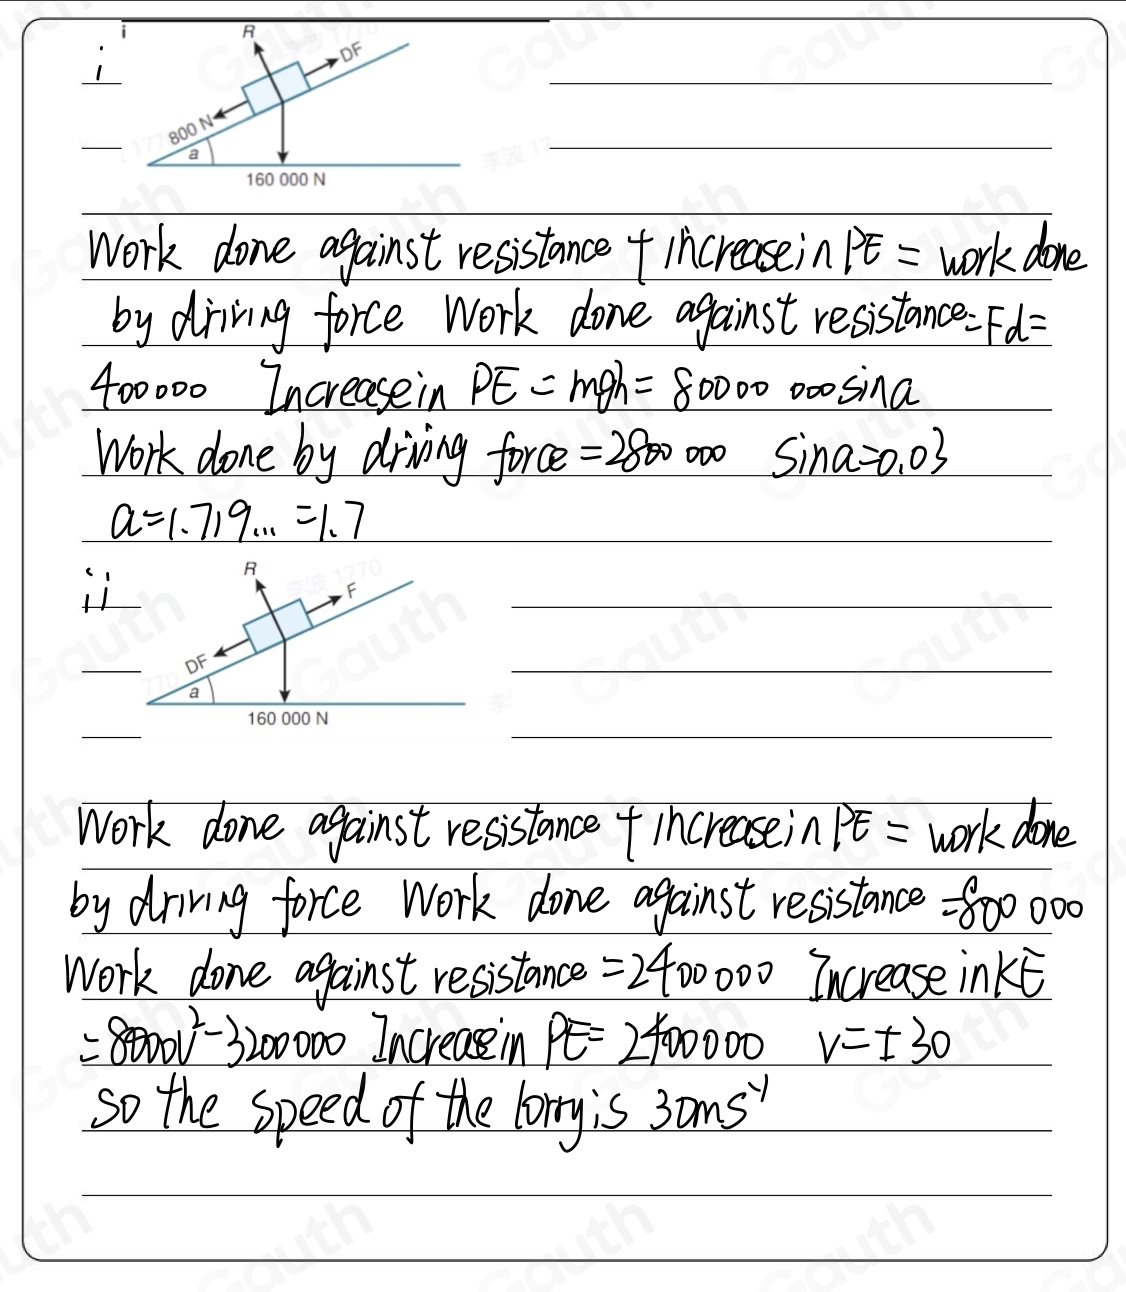 i
i
R
DF
800 N
a
160 000 N
Work done against resistance + increase in PE = work done
by driving force Work done against resistance = Fd =
400000 Increase in PE = mgh = 80000 000 sin a
Work done by driving force = 2800 000 sin a = 0.03
a = 1.719... = 1.7
ii
R
F
DF
a
160 000 N
Work done against resistance + increase in PE = work done
by driving force Work done against resistance = 800 000
Work done against resistance = 2400 000 Increase in KE
= 8000v² - 3200000 Increase in PE = 2400000 v = ± 30
so the speed of the lorry is 30ms⁻¹